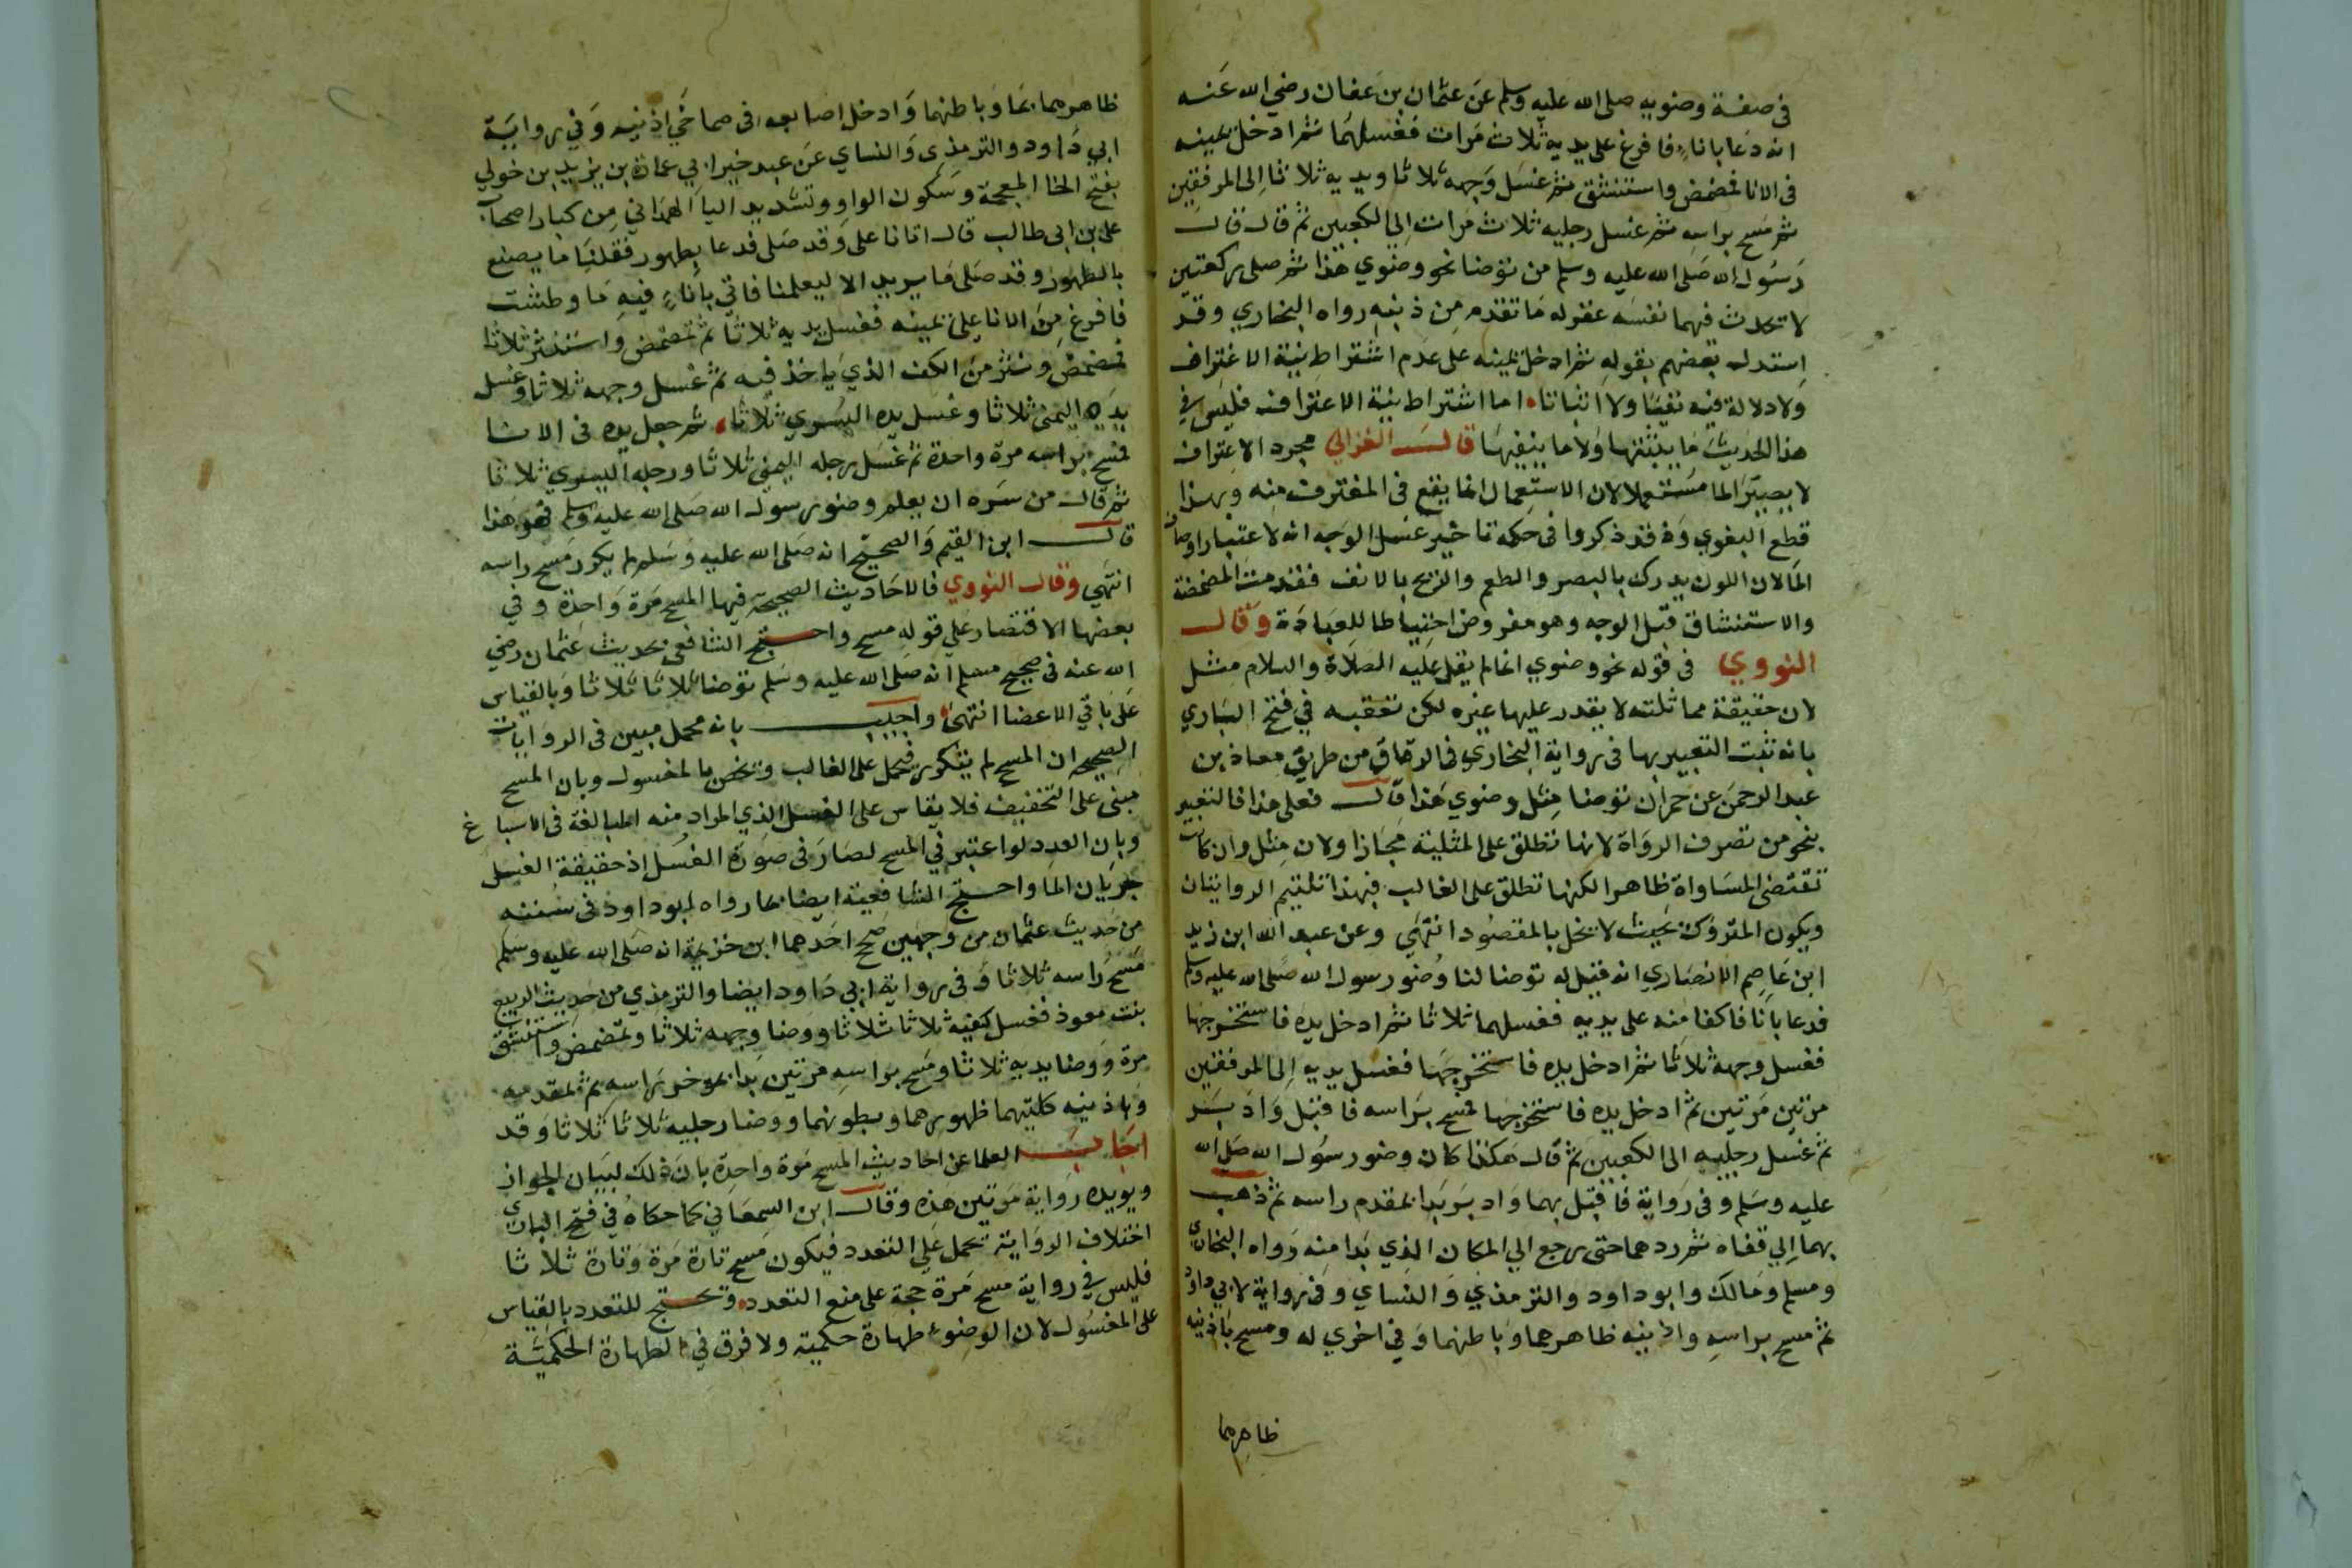 في صفة وضوءيه صلى الله عليه وسلم عن عثمان بن عفان رضي الله عنه
انه دعا باناءٍ فافرغ على يديه ثلاث مرات فغسلهما ثم ادخل يمينه
في الانا فمضمض واستنشق ثم غسل وجهه ثلاثا ويديه ثلاثا الى المرفقين
ثم مسح براسه ثم غسل رجليه ثلاث مرات الى الكعبين ثم قال قال
رسول الله صلى الله عليه وسلم من توضا نحو وضوي هذا ثم صلى ركعتين
لا تحدث فيهما نفسه غفر له ما تقدم من ذنبه رواه البخاري وقد
استدل بعضهم بقوله ثم ادخل يمينه على عدم اشتراط نية الاغتراف
ولا دلالة فيه نفيا ولا اثباتا، اما اشتراط نية الاغتراف فليس في
هذا الحديث ما يثبتها ولا ما ينفيها قال الغزالي مجرد الاغتراف
لا يصير الما مستعملا لان الاستعمال انما يقع في المغترف منه وبهذا
قطع البغوي وقد ذكروا في حكمة تاخير غسل الوجه انه لاعتبار اوصاف
الما لان اللون يدرك بالبصر والطعم والريح بالانف فقدمت المضمضة
والاستنشاق قبل الوجه وهو مفروض احتياطا للعبادة وقال
النووي في قوله نحو وضوي انما لم يقل عليه الصلاة والسلام مثل
لان حقيقة مماثلته لا يقدر عليها غيره لكن تعقبه في فتح الباري
بانه ثبت التعبير بها في رواية البخاري في الرقاق من طريق معاذ بن
عبد الرحمن عن حمران توضا مثل وضوي هذا قال فعلى هذا فالتعبير
بنحو من تصرف الرواة لانها تطلق على المثلية مجازا ولان مثل وان كانت
تقتضي المساواة ظاهرا لكنها تطلق على الغالب فبهذا تلتيم الروايتان
ويكون المتروك بحيث لا يخل بالمقصود انتهى وعن عبد الله ابن زيد
ابن عاصم الانصاري انه قيل له توضا لنا وضو رسول الله صلى الله عليه وسلم
فدعا بانا فاكفا منه على يديه فغسلهما ثلاثا ثم ادخل يده فاستخرجها
فغسل وجهه ثلاثا ثم ادخل يده فاستخرجها فغسل يديه الى المرفقين
مرتين مرتين ثم ادخل يده فاستخرجها فمسح براسه فاقبل وادبر
ثم غسل رجليه الى الكعبين ثم قال هكذا كان وضو رسول الله صلى الله
عليه وسلم وفي رواية فاقبل بهما وادبر بدا بمقدم راسه ثم ذهب
بهما الي قفاه ثم ردهما حتى رجع الي المكان الذي بدا منه رواه البخاري
ومسلم ومالك وابو داود والترمذي والنساي وفي رواية لابي داود
ثم مسح براسه واذنيه ظاهرهما وباطنهما وفي اخري له ومسح باذنيه
ظاهرهما
ظاهرهما وباطنهما وادخل اصابعه في صماخي اذنيه وفي رواية
ابي داود والترمذي والنساي عن عبد خير ابي عمارة بن يزيد بن خولي
بفتح الخا المعجمة وسكون الواو وتشديد اليا الهمداني من كبار اصحاب
علي بن ابي طالب قال اتانا علي وقد صلى فدعا بطهور فقلنا ما يصنع
بالطهور وقد صلى ما يريد الا ليعلمنا فاتي باناءٍ فيه ما وطشت
فافرغ من الانا على يمينه فغسل يديه ثلاثا ثم تمضمض واستنثر ثلاثا
فمضمض ونثر من الكف الذي ياخذ فيه ثم غسل وجهه ثلاثا وغسل
يده اليمنى ثلاثا وغسل يده اليسري ثلاثا، ثم جعل يده في الانا
فمسح براسه مرة واحدة ثم غسل رجله اليمنى ثلاثا ورجله اليسري ثلاثا
ثم قال من سره ان يعلم وضو رسول الله صلى الله عليه وسلم فهو هذا
قال ابن القيم والصحيح انه صلى الله عليه وسلم لم يكرر مسح راسه
انتهي وقال النووي فالاحاديث الصحيحة فيها المسح مرة واحدة وفي
بعضها الاقتصار علي قوله مسح واحتج الشافعي بحديث عثمان رضي
الله عنه في صحيح مسلم انه صلى الله عليه وسلم توضا ثلاثا ثلاثا وبالقياس
على باقي الاعضا انتهى واجيب بانه مجمل مبين في الروايات
الصحيحه ان المسح لم يتكرر فيحمل على الغالب ويختص بالمغسول وبان المسح
مبنى على التخفيف فلا يقاس على الغسل الذي المراد منه المبالغة في الاسباغ
وبان العدد لو اعتبر في المسح لصار في صورة الغسل اذ حقيقة الغسل
جريان الما واحتج الشافعية ايضا بما رواه ابو داود في سننه
من حديث عثمان من وجهين صح احدهما ابن خزيمة انه صلى الله عليه وسلم
مسح راسه ثلاثا وفي رواية ابي داود ايضا والترمذي من حديث الربيع
بنت معوذ فغسل كفيه ثلاثا ثلاثا ووضا وجهه ثلاثا وتمضمض واستنشق
مرة ووضا يديه ثلاثا ومسح براسه مرتين بدا بموخر راسه ثم بمقدمه
وباذنيه كلتيهما ظهورهما وبطونهما ووضا رجليه ثلاثا ثلاثا وقد
اجاب العلما عن احاديث المسح مرة واحدة بان ذلك لبيان الجواز
ويويده رواية مرتين هذه وقال ابن السمعاني كما حكاه في فتح الباري
اختلاف الرواية تحمل على التعدد فيكون مسح تارة مرة وتارة ثلاثا
فليس في رواية مسح مرة حجة على منع التعدد، وتحتج للتعدد بالقياس
على المغسول لان الوضوء طهارة حكمية ولا فرق في الطهارة الحكمية